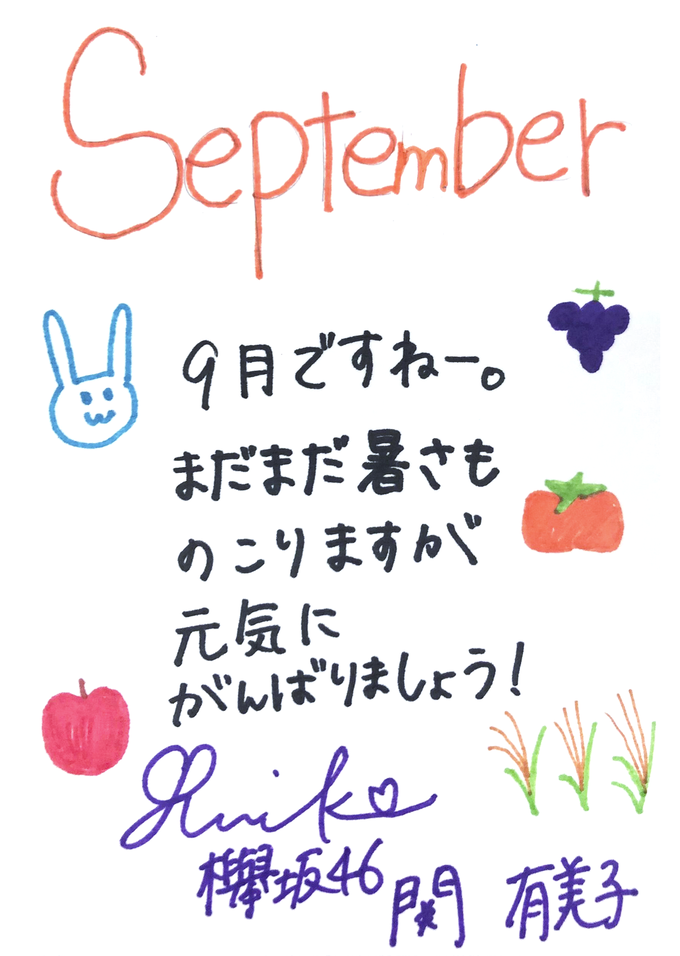 September
9月ですねー。
まだまだ暑さも
のこりますが
元気に
がんばりましょう!
欅坂46 関 有美子